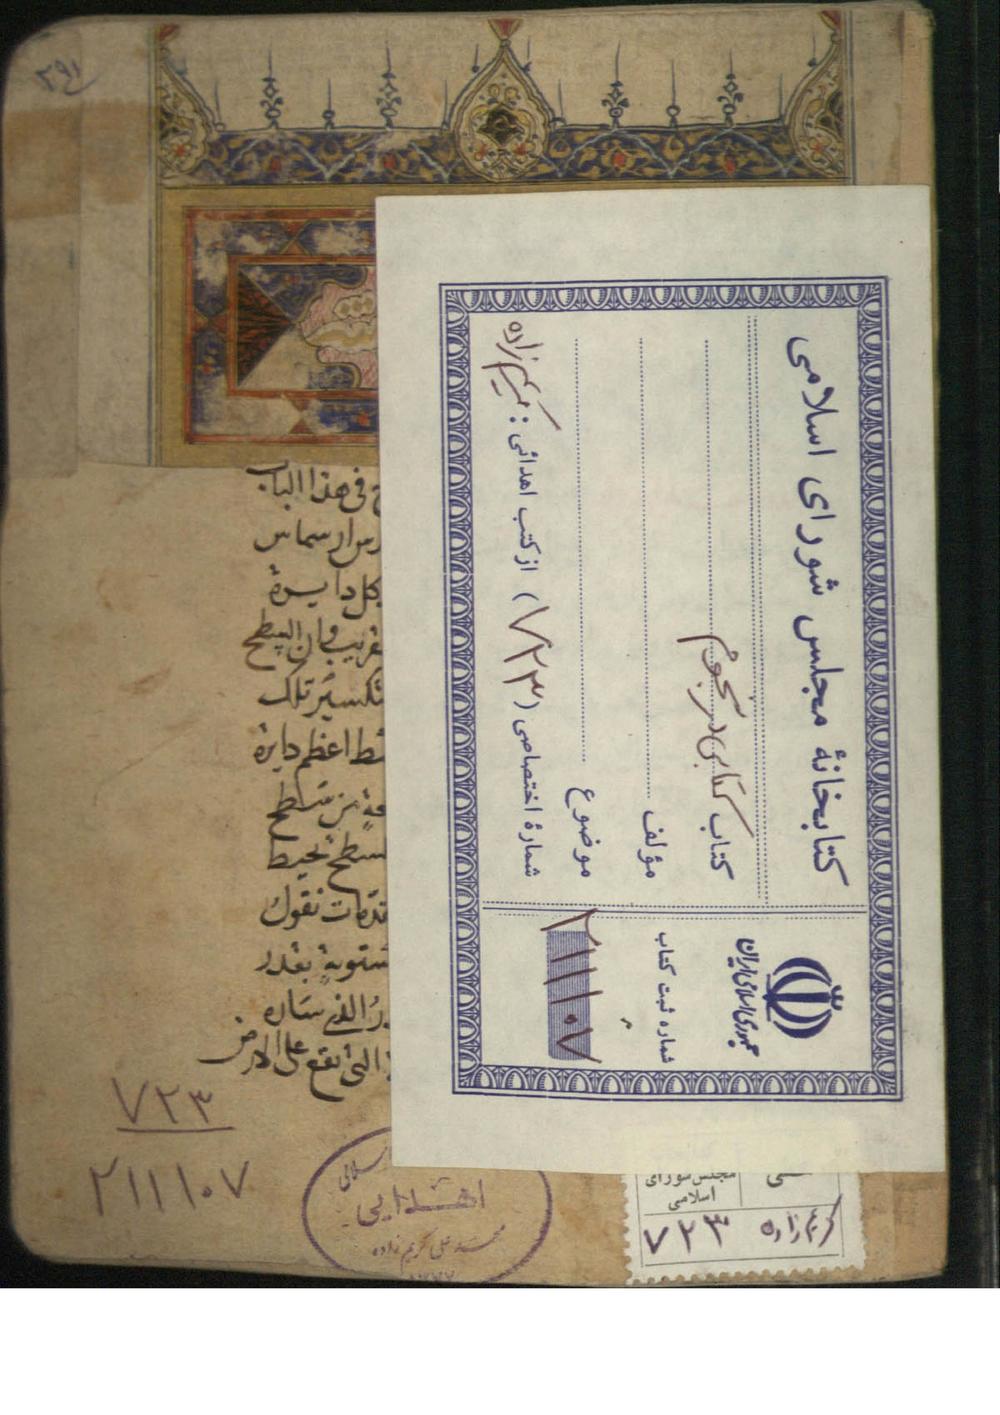 ۲۹۱
کتابخانهٔ مجلس شورای اسلامی
کتاب کتابی در نجوم
مؤلف
موضوع
شمارهٔ اختصاصی (۷۲۳) از کتب اهدائی : کریم‌زاده
جمهوری اسلامی ایران
شماره ثبت کتاب
۲۱۱۱۰۷
فی هذا الباب
بکل دایرة
السطح
تکسیر تلک
اعظم دایرة
من سطح
سطح تحیط
نقول
مستویة بقدر
الذی
التی تقع علی الارض
۷۲۳
۲۱۱۱۰۷
اهدایی
محمد علی کریم زاده
مجلس شورای
اسلامی
کریم‌زاده ۷۲۳